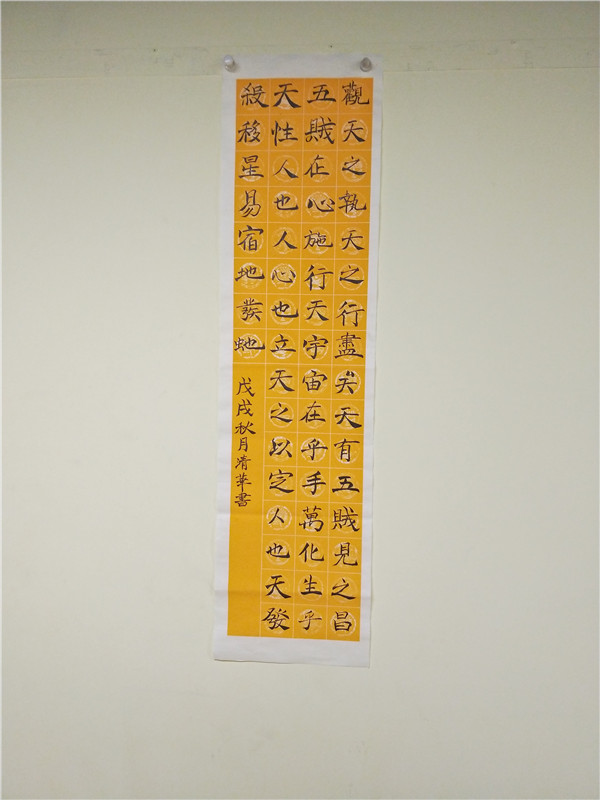 觀天之執天之行盡矣天有五賊見之昌
五賊在心施行天宇宙在乎手萬化生乎
天性人也人心也立天之以定人也天發
殺移星易宿地發虵
戊戌秋月清華書